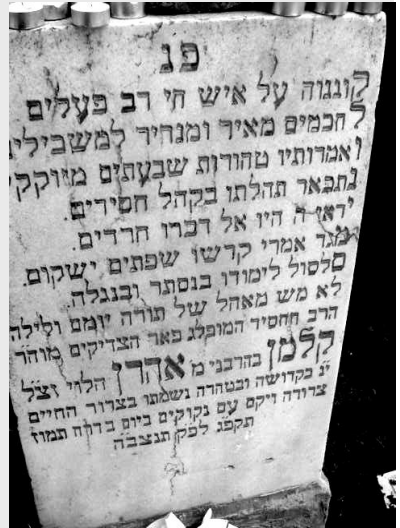 פנ
קוננוה על איש חי רב פעלים
לחכמים מאיר ומנהיר למשכילים
ואמרותיו טהורות שבעתים מזוקקי
נתפאר תהלתו בקהל חסידים.
יראי ה היו אל דברו חרדים.
מגד אמרי קדשו שפתים ישקום.
סלסול לימודו בנסתר ובנגלה.
לא מש מאהל של תורה יומם ולילה
הרב החסיד המופלג פאר הצדיקים מוהר
קלמן בהרבני מ אהרן הלוי זצל
ינ בקדושה ובטהרה נשמתו בצרור החיים
צרודה ויקם עם נקוקים ביום ב דרח תמוז
תקפג לפק תנצבה